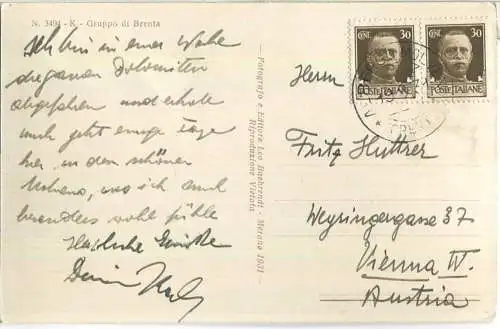 N. 3494 - K - Gruppo di Brenta
Ich bin in einer Woche
Dolomiten
abgefahren und erhole
mich jetzt einige Tage
hier in dem schönen
Merano, wo ich mich
besonders wohl fühle
Herzliche Grüße
Fotografo e Editore Leo Baehrendt - Merano 1931
Riproduzione Vietata
CENT. 30
POSTE ITALIANE
CENT. 30
POSTE ITALIANE
Herrn
Fritz Huttrer
Weyringergasse 37
Vienna IV.
Austria